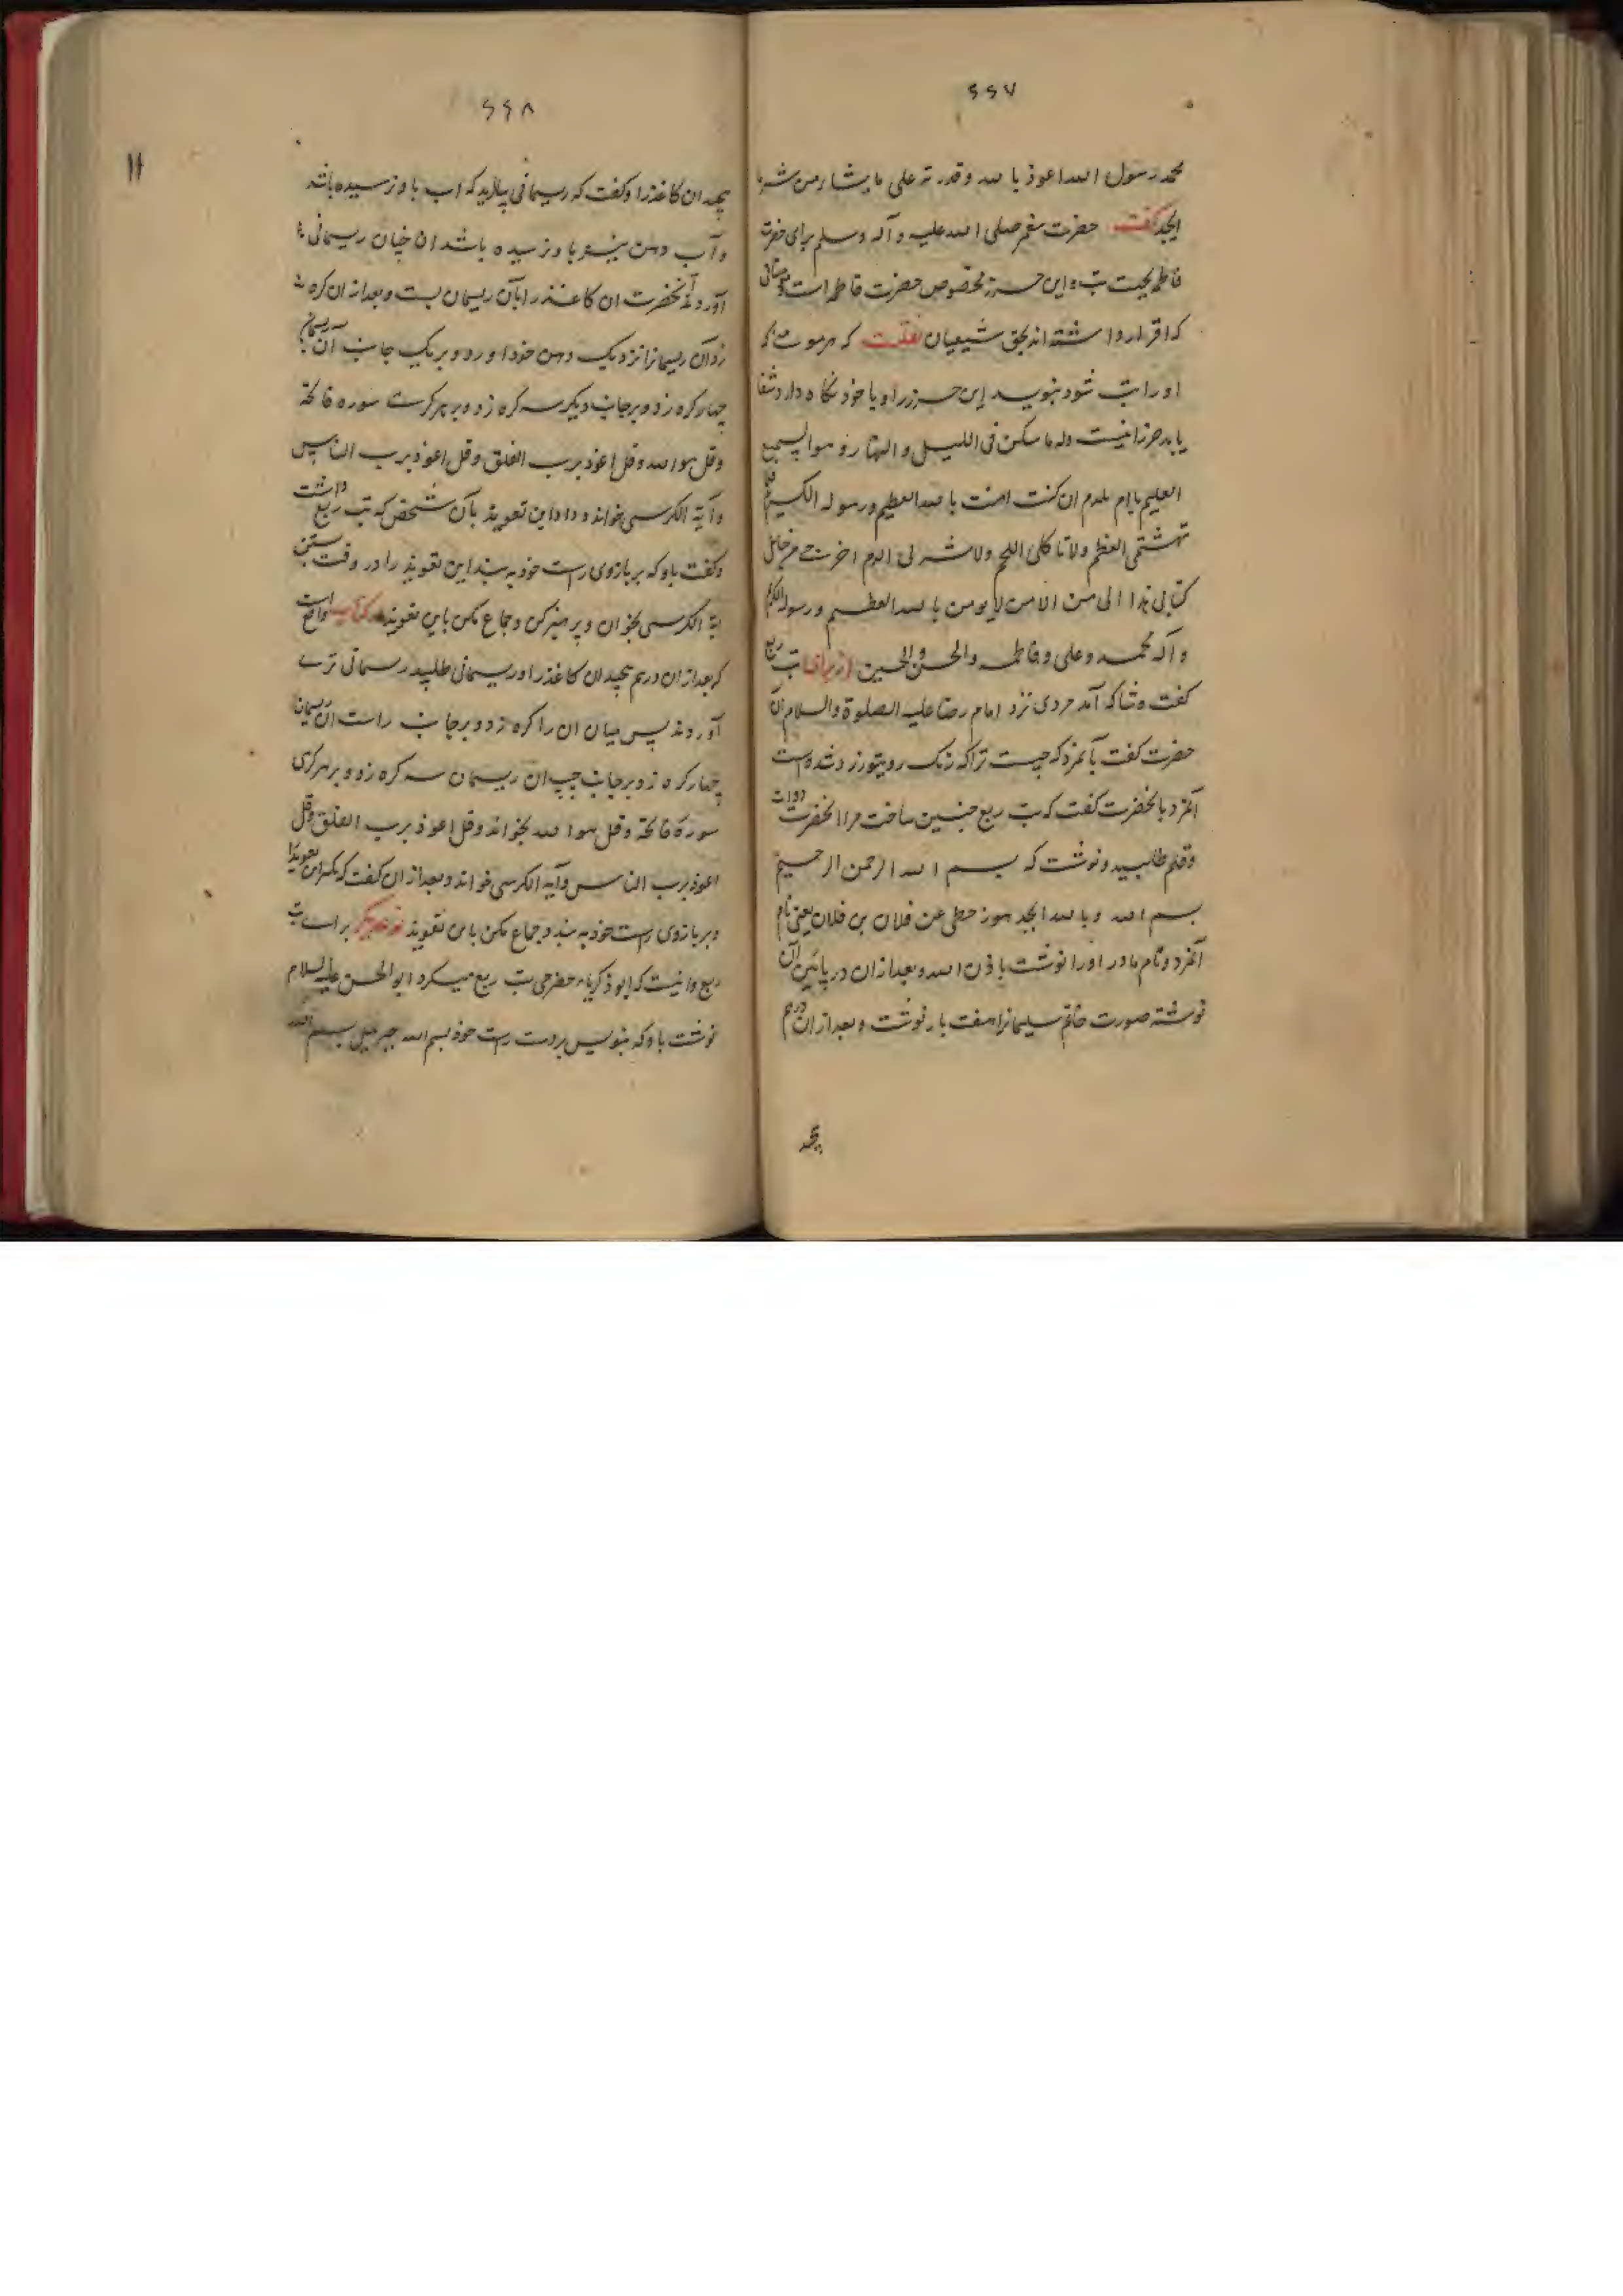 ۶۶۷
محمد رسول الله اعوذ بالله وقدرته علی ما یشاء من شر ما
اجد گفت حضرت پیغمبر صلی الله علیه و آله وسلم برای حضرت
فاطمه بجهت تب و این حرز مخصوص حضرت فاطمه است
که اقرار داشته اند بحق شیعیان که هر مومنی که
او را تب شود بنویسد این حرز را و با خود نگاه دارد شفا
یابد حرز اینست وله ما سکن فی اللیل والنهار وهو السمیع
العلیم یا ام ملدم ان کنت امنت بالله العظیم ورسوله الکریم فلا
تهشمی العظم ولا تاکلی اللحم ولا تشربی الدم اخرجی من حامل
کتابی هذا الی من لا یومن بالله العظیم ورسوله الکریم
وآله محمد وعلی وفاطمه والحسن والحسین از برای تب ربع
گفت وشا که آمد مردی نزد امام رضا علیه الصلوة والسلام آن
حضرت گفت بآنمرد که چیست ترا که رنگ روی تو زرد شده است
آنمرد بآنحضرت گفت که تب ربع چنین ساخت مرا آنحضرت دوات
وقلم طلبید ونوشت که بسم الله الرحمن الرحیم
بسم الله وبالله ابجد هوز حطی عن فلان بن فلان یعنی نام
آنمرد ونام مادر او را نوشت باذن الله وبعد از آن در پائین آن
نوشته صورت خاتم سلیمانرا هفت بار نوشت وبعد از ان درهم
پیچید
۶۶۸
پیچید ان کاغذ را وگفت که ریسمانی بیارید که اب باو نرسیده باشد
وآب دهن نیز باو نرسیده باشد ان چنان ریسمانی
آوردند آنحضرت ان کاغذ را بآن ریسمان بست وبعد از ان گره
زد آن ریسمانرا نزدیک دهن خود آورد وبر یک جانب آن ریسمان
چهار گره زد وبر جانب دیگر سه گره زد وبر هر گرهی سوره فاتحه
وقل هو الله وقل اعوذ برب الفلق وقل اعوذ برب الناس
وآیة الکرسی بخواند وداد این تعویذ بآن شخص که تب ربع داشت
وگفت باو که بر بازوی راست خود به بند این تعویذ را در وقت بستن
ایة الکرسی بخوان وپرهیز کن وجماع مکن باین تعویذ
که بعد از ان درهم پیچید ان کاغذ را وریسمانی طلبید ریسمانی تری
آوردند پس میان ان را گره زد وبر جانب راست آن ریسمان
چهار گره زد وبر جانب چپ ان ریسمان سه گره زد وبر هر گرهی
سورة فاتحه وقل هو الله بخواند وقل اعوذ برب الفلق وقل
اعوذ برب الناس وآیة الکرسی خواند وبعد از ان گفت که بگیر این تعویذ را
وبر بازوی راست خود به بند وجماع مکن باین تعویذ نوع دیگر براے تب
ربع وانیست که ابو ذکریاء حضرمی تب ربع میکرد ابو الحسن علیه السلام
نوشت باو که بنویس بر دست راست خود بسم الله جبرئیل بسم الله